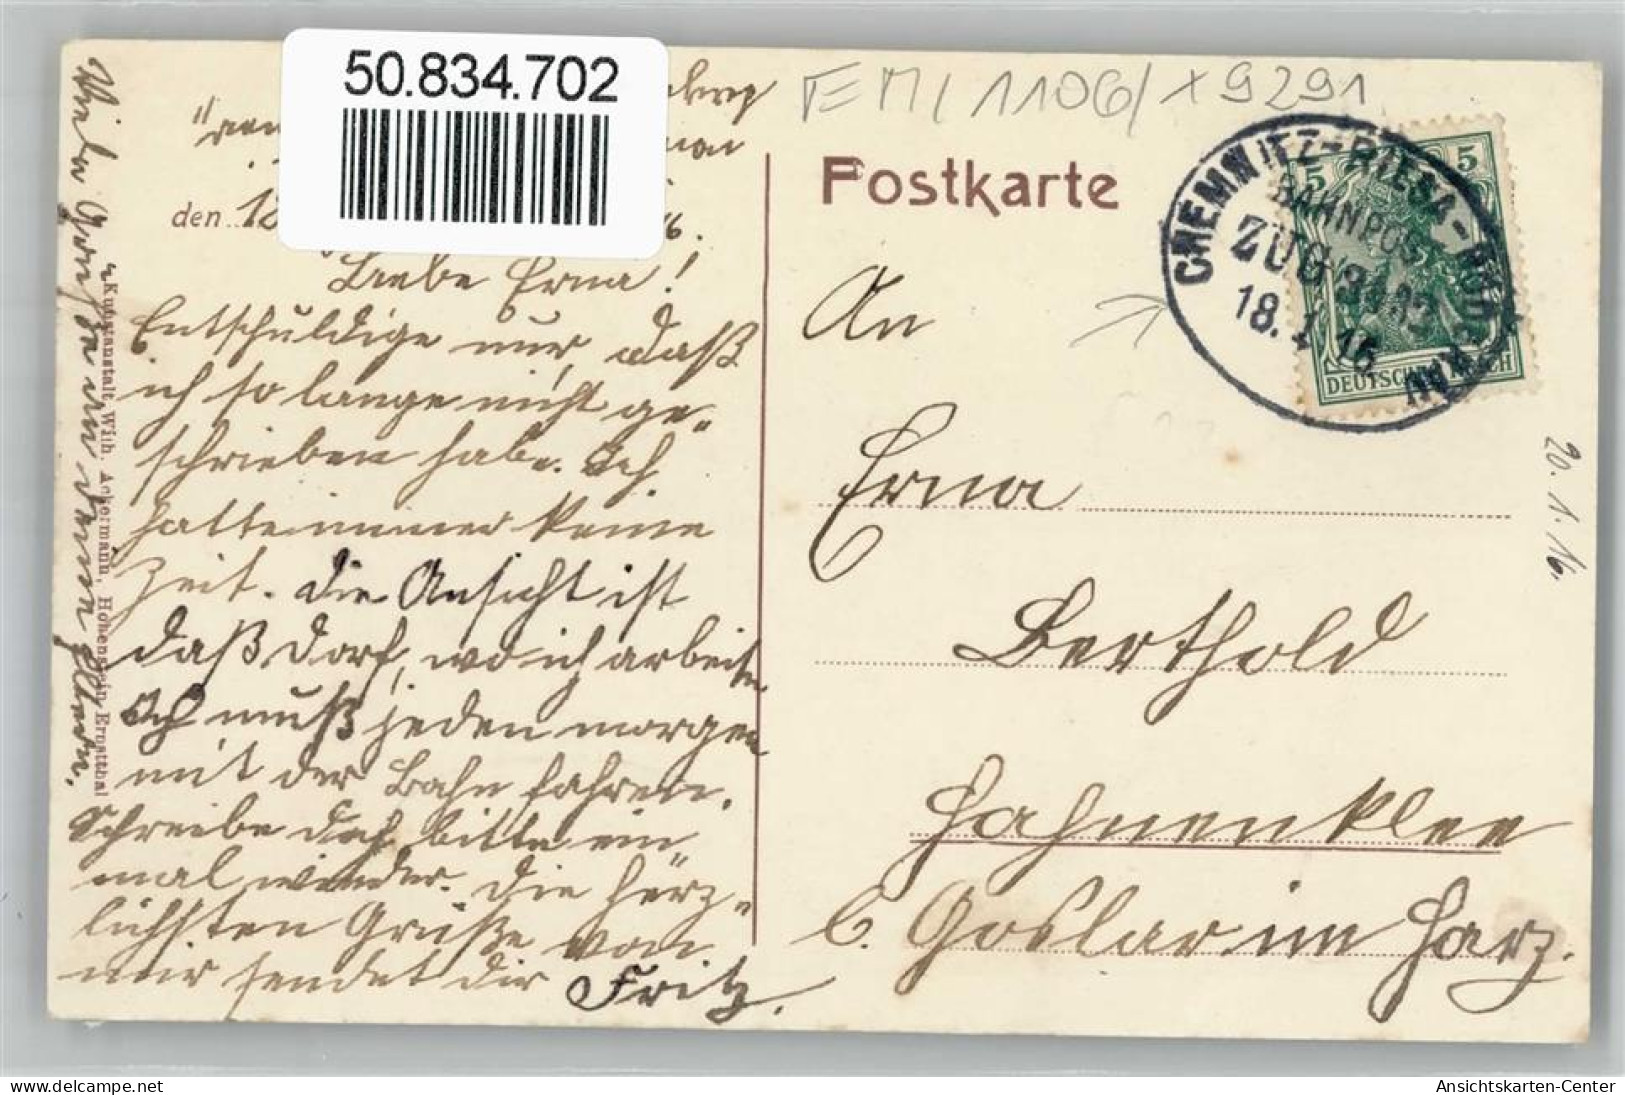 50.834.702
den 18
16.
Liebe Erna!
Entschuldige nur, daß
ich so lange nicht ge-
schrieben habe. Ich
hatte immer keine
Zeit. Die Ansicht ist
daß Dorf, wo ich arbeite
Ich muß jeden morgen
mit der Bahn fahren.
Schreibe doch bitte ein
mal wieder. Die herz-
lichsten Grüße von
mir sendet dir Fritz.
Viele Grüße an deine Eltern.
Kunstanstalt Wilh. Ackermann, Hohenstein-Ernstthal
FM/1106/ x 9291
Postkarte
CHEMNITZ-RIESA-
BAHNPOST
ZUG
18.1.16
5 5
DEUTSCHES REICH
An
Erna
Berthold
Hahnenklee
b. Goslar im Harz.
20.1.16.
Ansichtskarten-Center